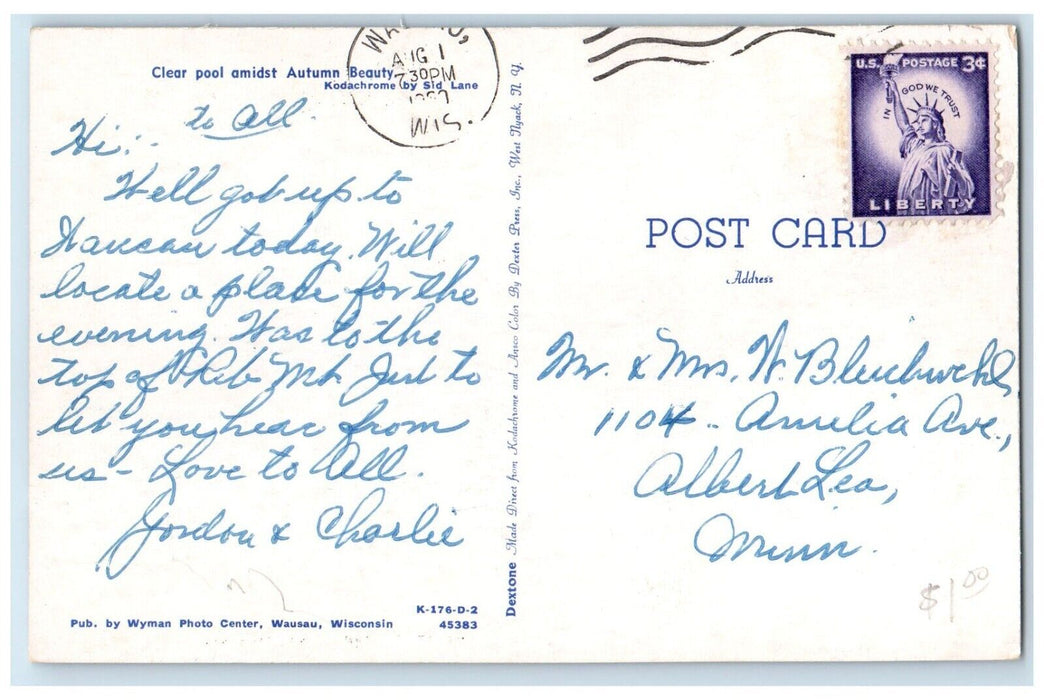 Clear pool amidst Autumn Beauty
Kodachrome by Sid Lane
Hi:- to All.
Well got up to
Wausau today. Will
locate a place for the
evening. Was to the
top of Rib Mt. Just to
let you hear from
us - Love to All.
& Charlie
K-176-D-2
Pub. by Wyman Photo Center, Wausau, Wisconsin 45383
Dextone Made Direct from Kodachrome and Ansco Color By Dexter Press, Inc., West Nyack, N. Y.
AUG 1
7 30 PM
WIS.
U.S. POSTAGE 3¢
IN GOD WE TRUST
LIBERTY
POST CARD
Address
Mr. & Mrs. W.
1104 - Amelia Ave.,
Albert Lea,
Minn.
$1.00